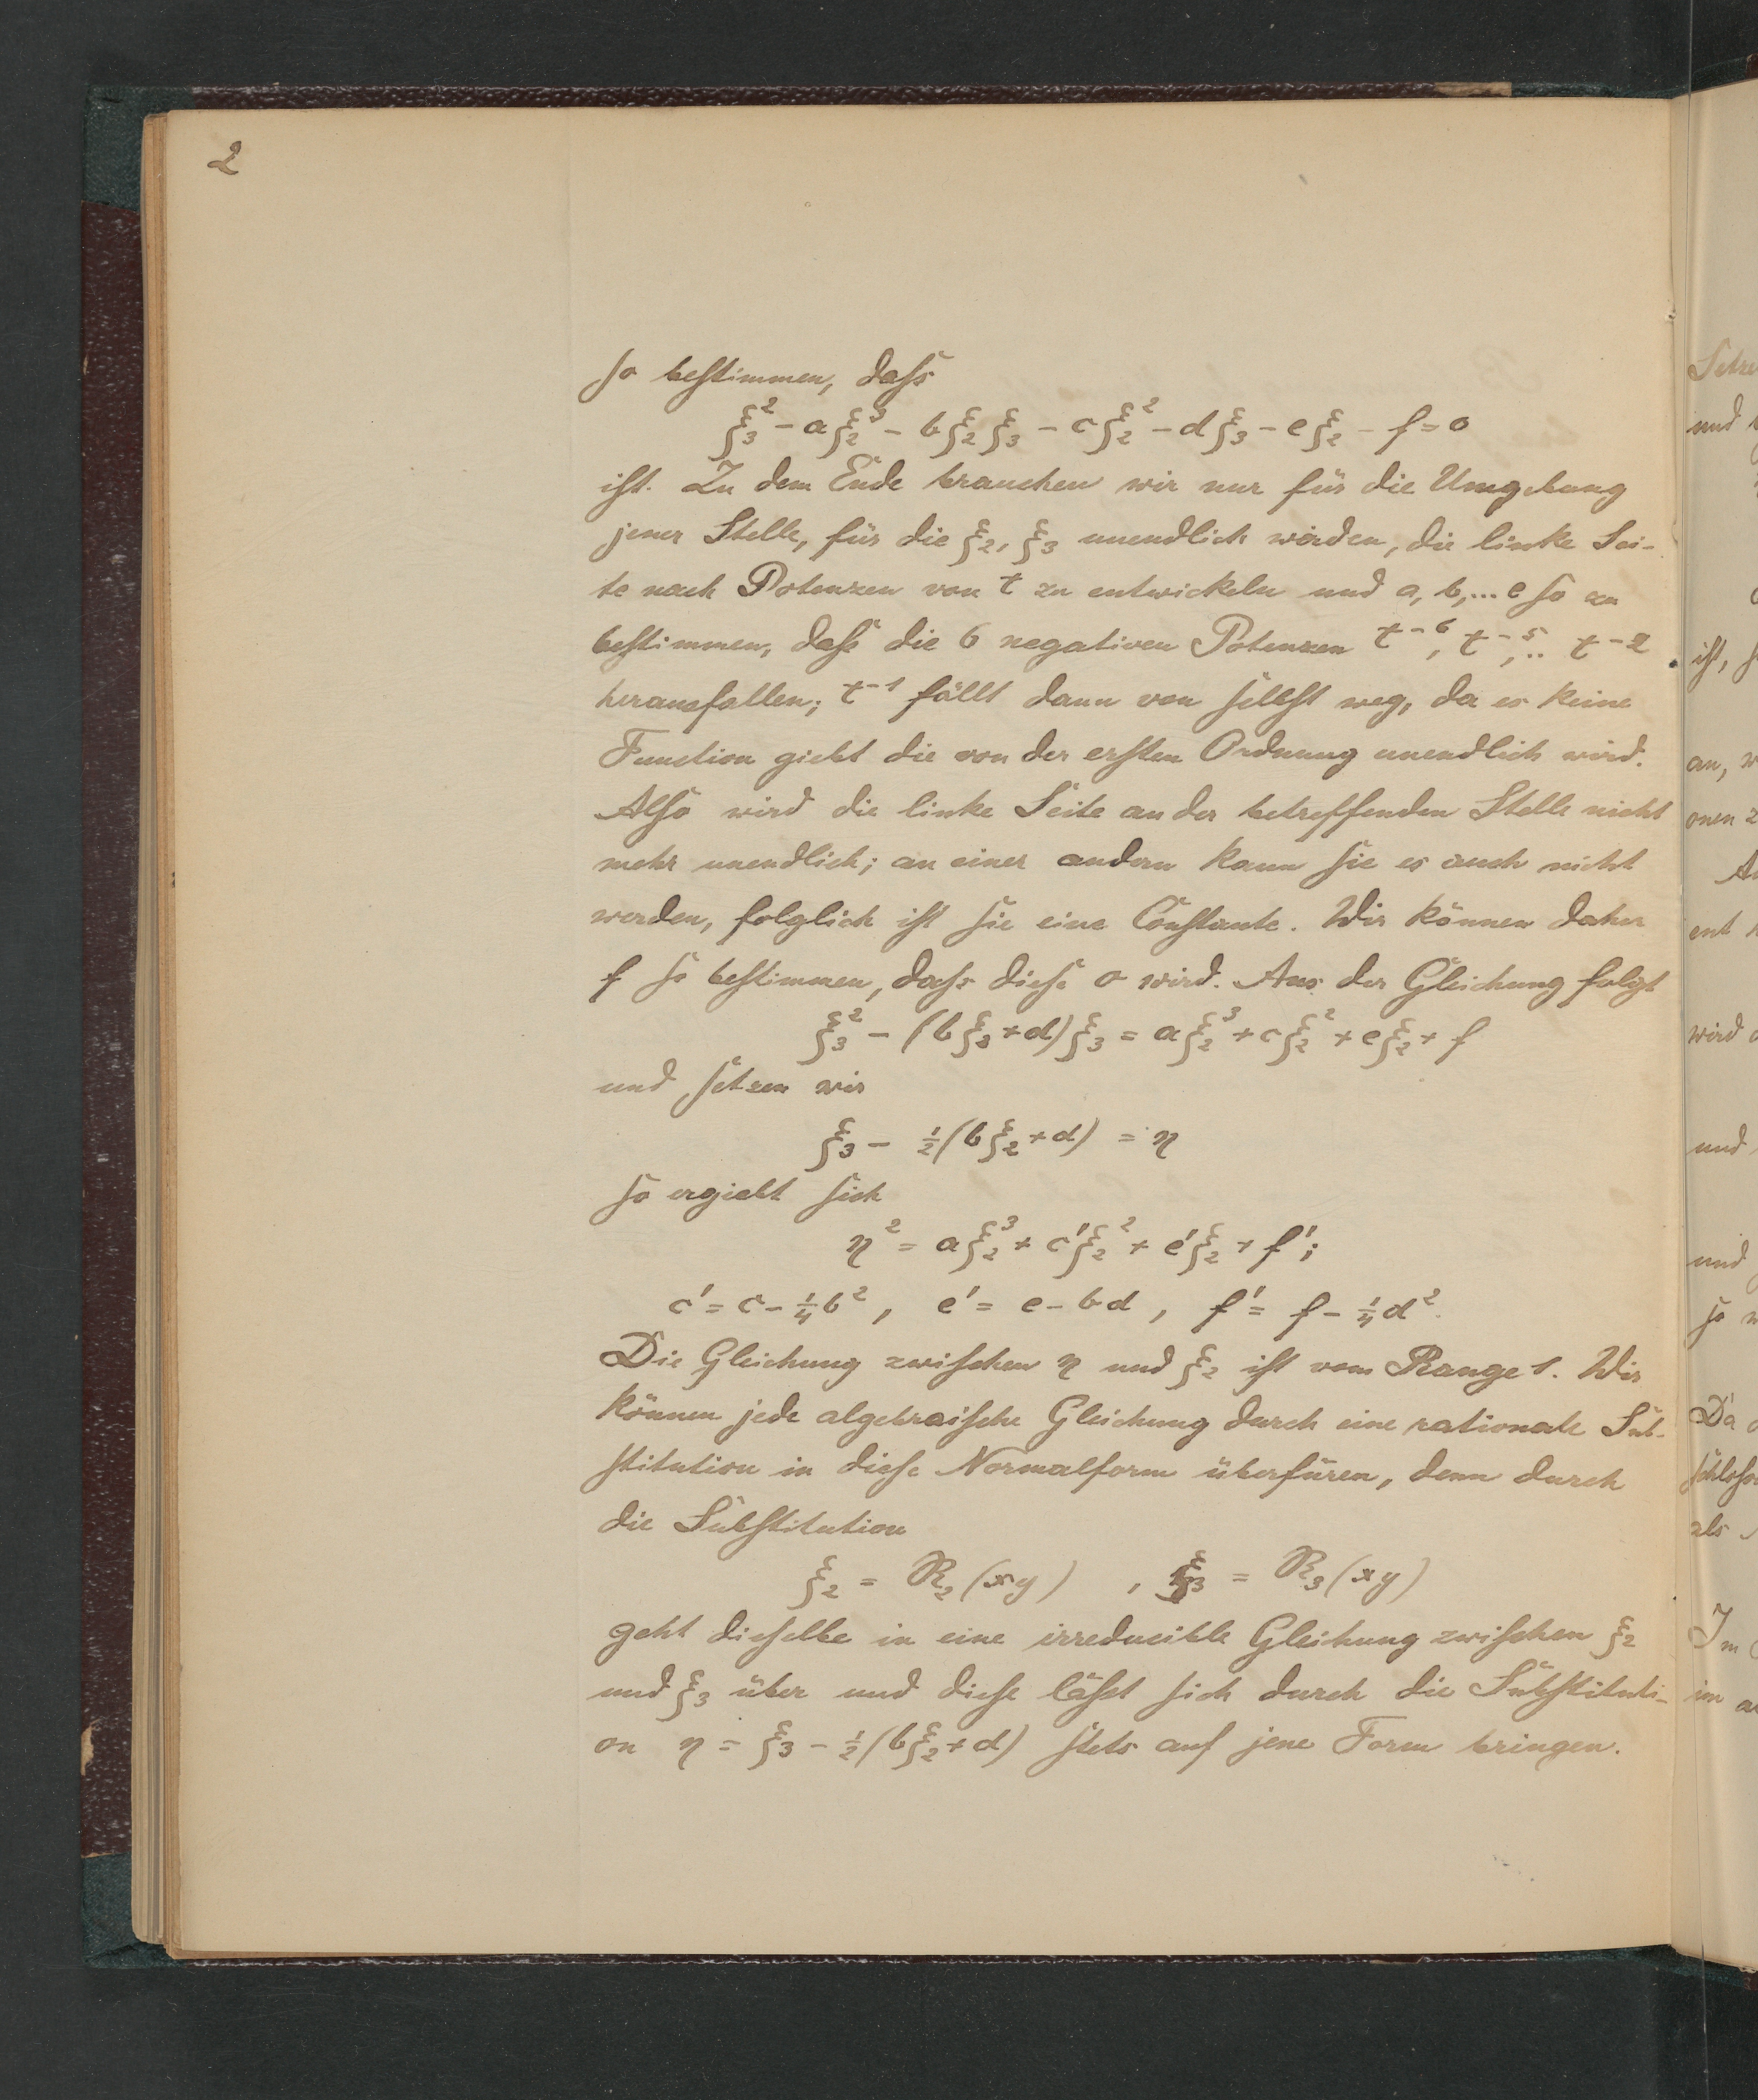 2
so bestimmen, dass
ξ₃² - aξ₂³ - bξ₂ξ₃ - cξ₂² - dξ₃ - eξ₂ - f = 0
ist. Zu dem Ende brauchen wir nur für die Umgebung
jener Stelle, für die ξ₂, ξ₃ unendlich werden, die linke Sei-
te nach Potenzen von t zu entwickeln und a, b, ... e so zu
bestimmen, dass die 6 negativen Potenzen t⁻⁶, t⁻⁵, .. t⁻²
herausfallen; t⁻¹ fällt dann von selbst weg, da es keine
Function giebt die von der ersten Ordnung unendlich wird.
Also wird die linke Seite an der betreffenden Stelle nicht
mehr unendlich; an einer andern kann sie es auch nicht
werden, folglich ist sie eine Constante. Wir können daher
f so bestimmen, dass diese 0 wird. Aus der Gleichung folgt
ξ₃² - (bξ₂+d)ξ₃ = aξ₂³ + cξ₂² + eξ₂ + f
und setzen wir
ξ₃ - ½(bξ₂+d) = η
so ergiebt sich
η² = aξ₂³ + c'ξ₂² + e'ξ₂ + f';
c' = c - ¼b², e' = e - bd, f' = f - ¼d².
Die Gleichung zwischen η und ξ₂ ist vom Range 1. Wir
können jede algebraische Gleichung durch eine rationale Sub-
stitution in diese Normalform überfüren, denn durch
die Substitution
ξ₂ = R₂(xy) , ξ₃ = R₃(xy)
geht dieselbe in eine irreducible Gleichung zwischen ξ₂
und ξ₃ über und diese lässt sich durch die Substituti-
on η = ξ₃ - ½(bξ₂+d) stets auf jene Form bringen.
und
ist,
an,
wird
und
und
so
Da
als
Im